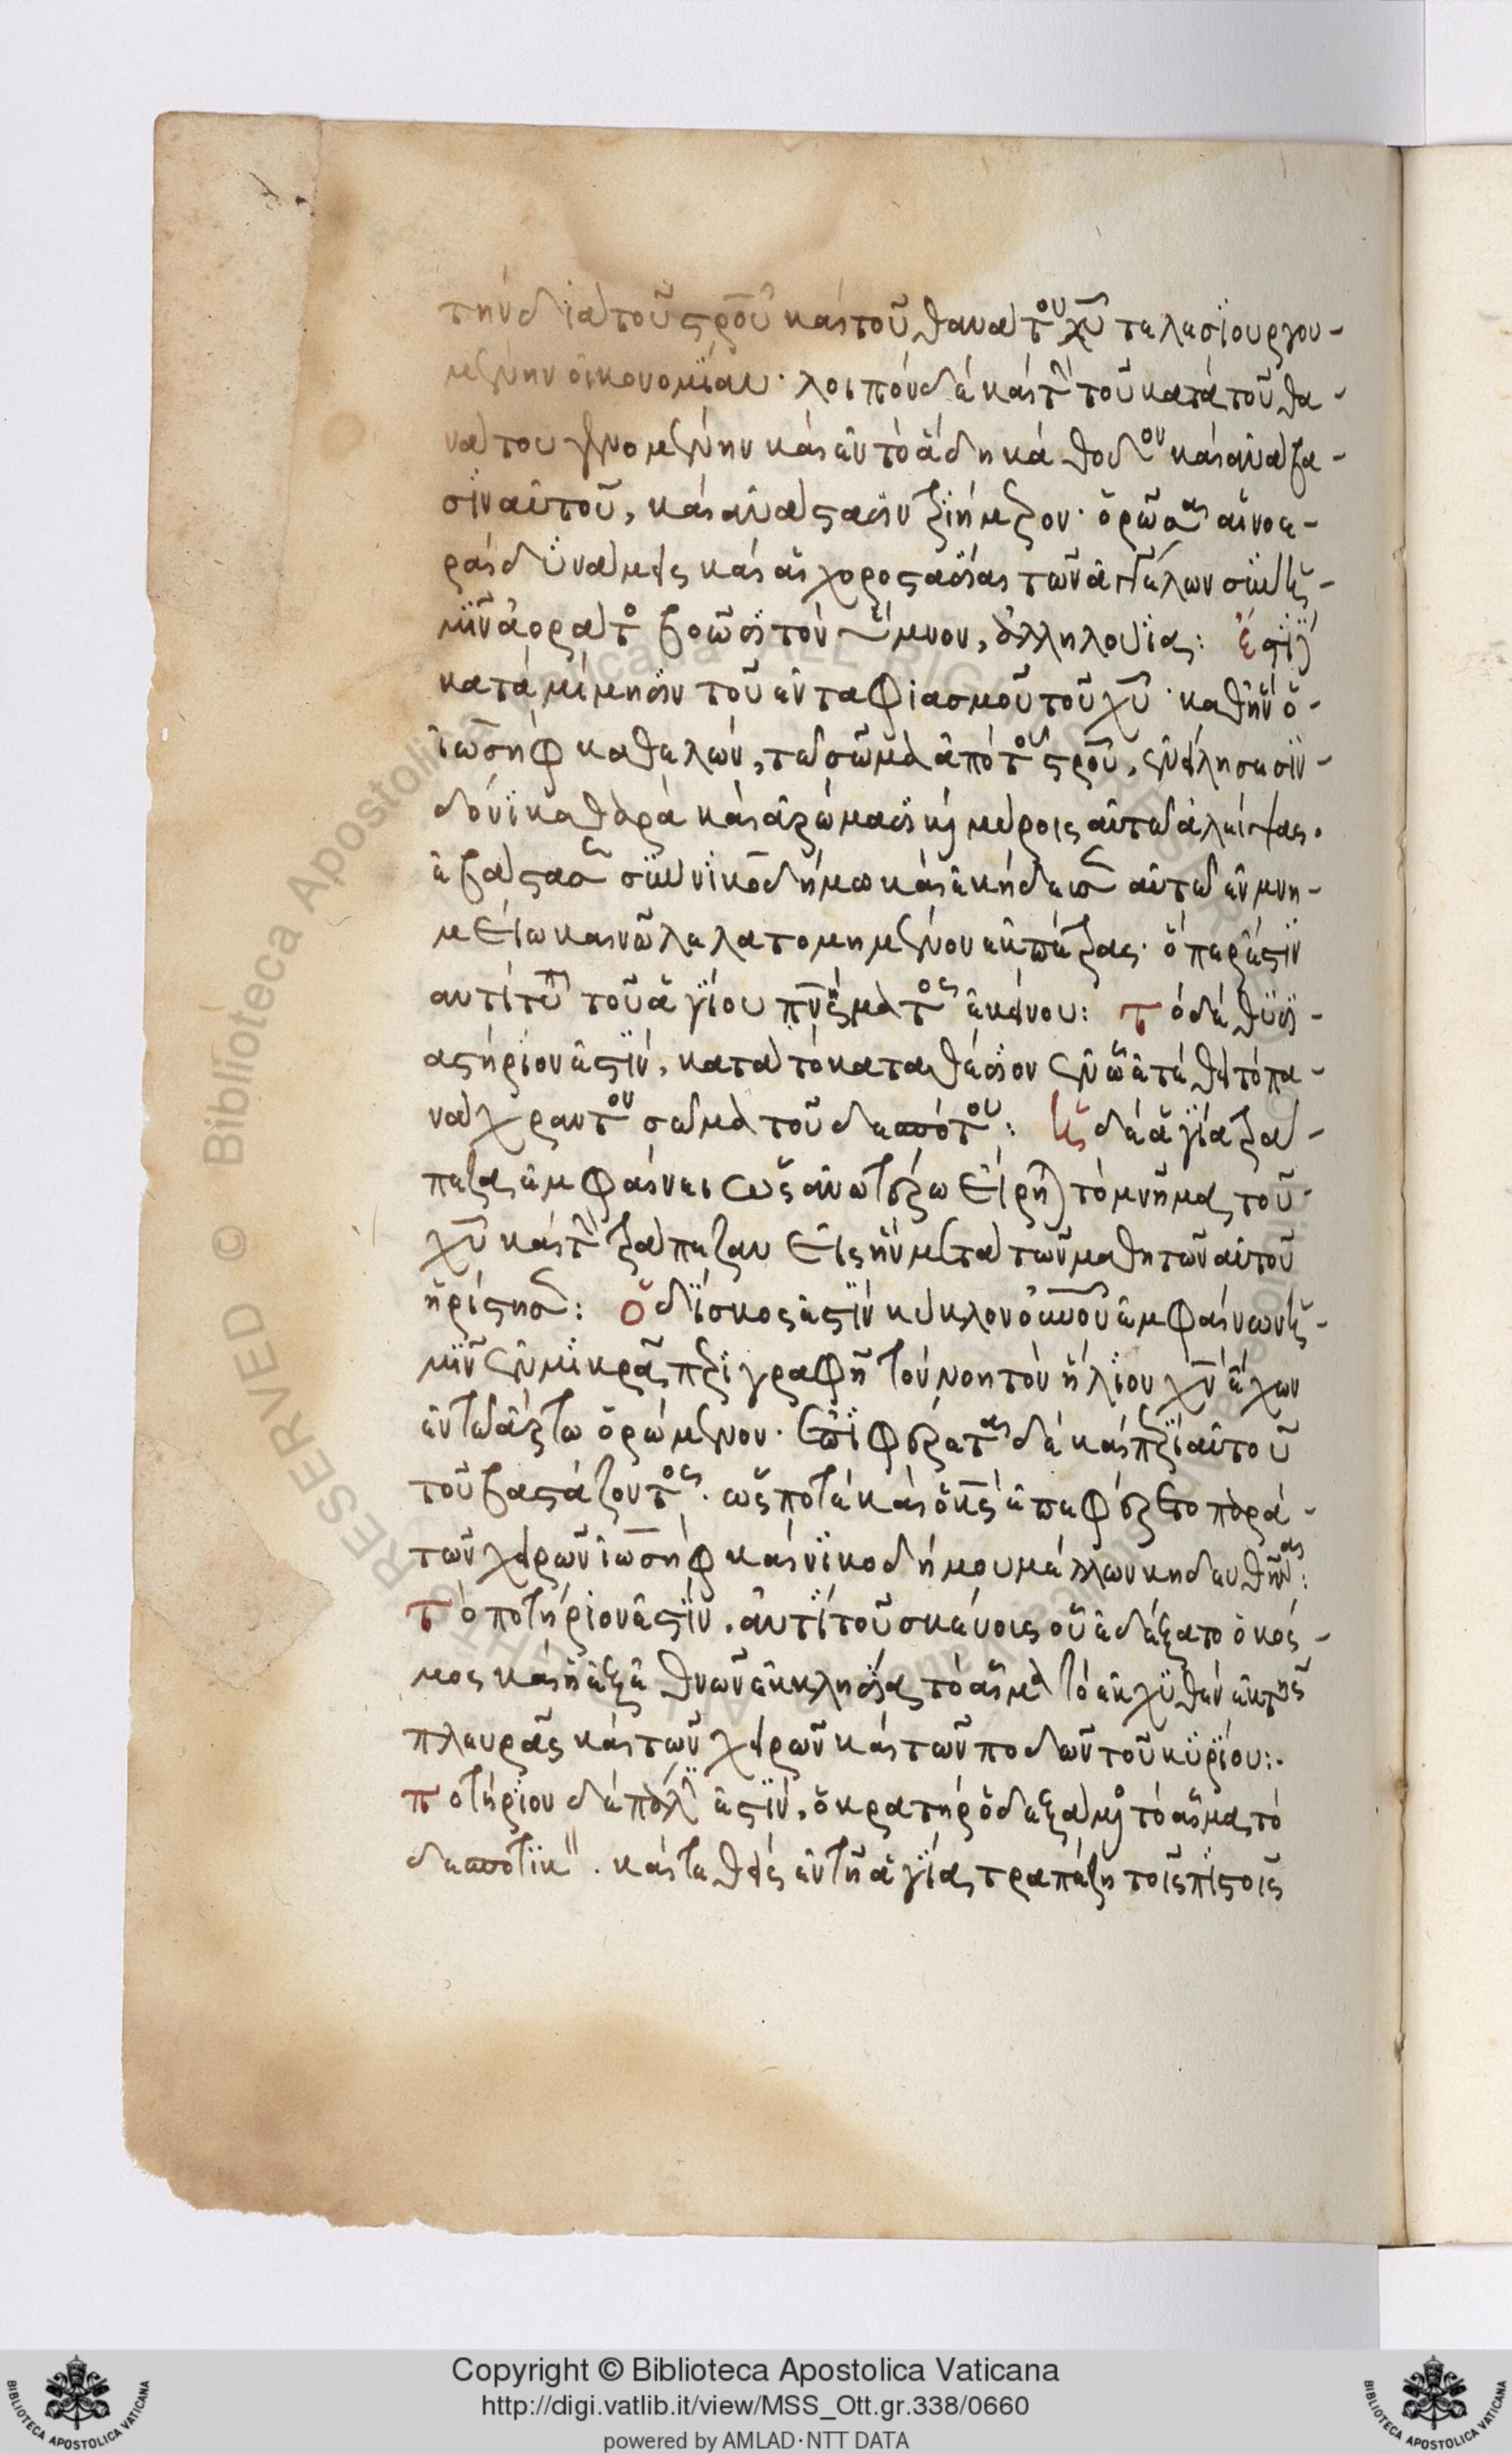 τὴν διὰ τοῦ στροῦ καὶ τοῦ θανάτου χυ τελεσιουργου-
μένην οἰκονομίαν· λοιπὸν δὲ καὶ τὴν τοῦ κατὰ τοῦ θα-
νάτου γενομένην καὶ ἐν τὸ ἅδη κάθοδον καὶ ἀνάβα-
σιν αὐτοῦ, καὶ ἀνάστασιν τριήμερον· ὁρῶσαι αἱ νοε-
ραὶ δυνάμεις καὶ αἱ χοροστασίαι τῶν ἀγγέλων σὺν ἡ-
μῖν ἀοράτως βοῶσι τὸν ὕμνον, ἀλληλούϊα: ἔστι
κατὰ μίμησιν τοῦ ἐνταφιασμοῦ τοῦ χυ· καθ' ἣν ὁ
ἰωσὴφ καθελὼν, τὸ σῶμα ἀπὸ τοῦ στροῦ, ἐνείλησε σιν-
δόνι καθαρᾶ καὶ ἀρώμασι καὶ μύροις αὐτὸ ἀλείψας.
ἐβάστασεν σὺν νικοδήμω καὶ ἐκήδευσεν αὐτὸ ἐν μνη-
μείω καινῶ λελατομημένον ἐκ πέτρας· ὅπερ ἐστὶν
ἀντίτυπον τοῦ ἁγίου μνήματος ἐκείνου: τὸ δὲ θυσι-
αστήριον ἐστὶν, κατὰ τὸ καταθέσιον ἐν ὧ ἐτέθει τὸ πα-
νάχραντον σῶμα τοῦ δεσπότου: ἡ δὲ ἁγία τρά-
πεζα ἐμφαίνει ὡς ἀνωτέρω εἴρηται τὸ μνῆμα τοῦ
χυ καὶ τὴν τράπεζαν εἰς ἣν μετὰ τῶν μαθητῶν αὐτοῦ
ἠρίστησεν: ὁ δίσκος ἐστὶν κύκλον οὐνου ἐμφαίνων ἡ-
μῖν ἐν μικρᾶ περιγραφῆ τὸν νοητὸν ἥλιον χν ἔχων
ἐν τῶ ἄρτω ὁρώμενον· ἐπιφέρεται δὲ καὶ περὶ αὐτοῦ
τοῦ βαστάζοντος· ὡς ποτὲ καὶ ὁ κς ἐπεφέρετο παρὰ
τῶν χειρῶν ἰωσὴφ καὶ νικοδήμου μέλλων κηδευθῆναι:
τὸ ποτήριον ἐστὶν, ἀντὶ τοῦ σκεύους οὗ ἐδέξατο ὁ κός-
μος καὶ ἡ ἐξ ἐθνῶν ἐκκλησία τὸ αἷμα τὸ ἐκχυθὲν ἐκ τῆς
πλευρᾶς καὶ τῶν χειρῶν καὶ τῶν ποδῶν τοῦ κυρίου:
ποτήριον δὲ πάλιν ἐστὶν, ὁ κρατὴρ ὁ δεξάμενος τὸ αἷμα τὸ
δεσποτικὸν. καὶ τεθεὶς ἐν τῆ ἁγία τραπέζη τοῖς πιστοῖς
Copyright © Biblioteca Apostolica Vaticana
http://digi.vatlib.it/view/MSS_Ott.gr.338/0660
powered by AMLAD·NTT DATA